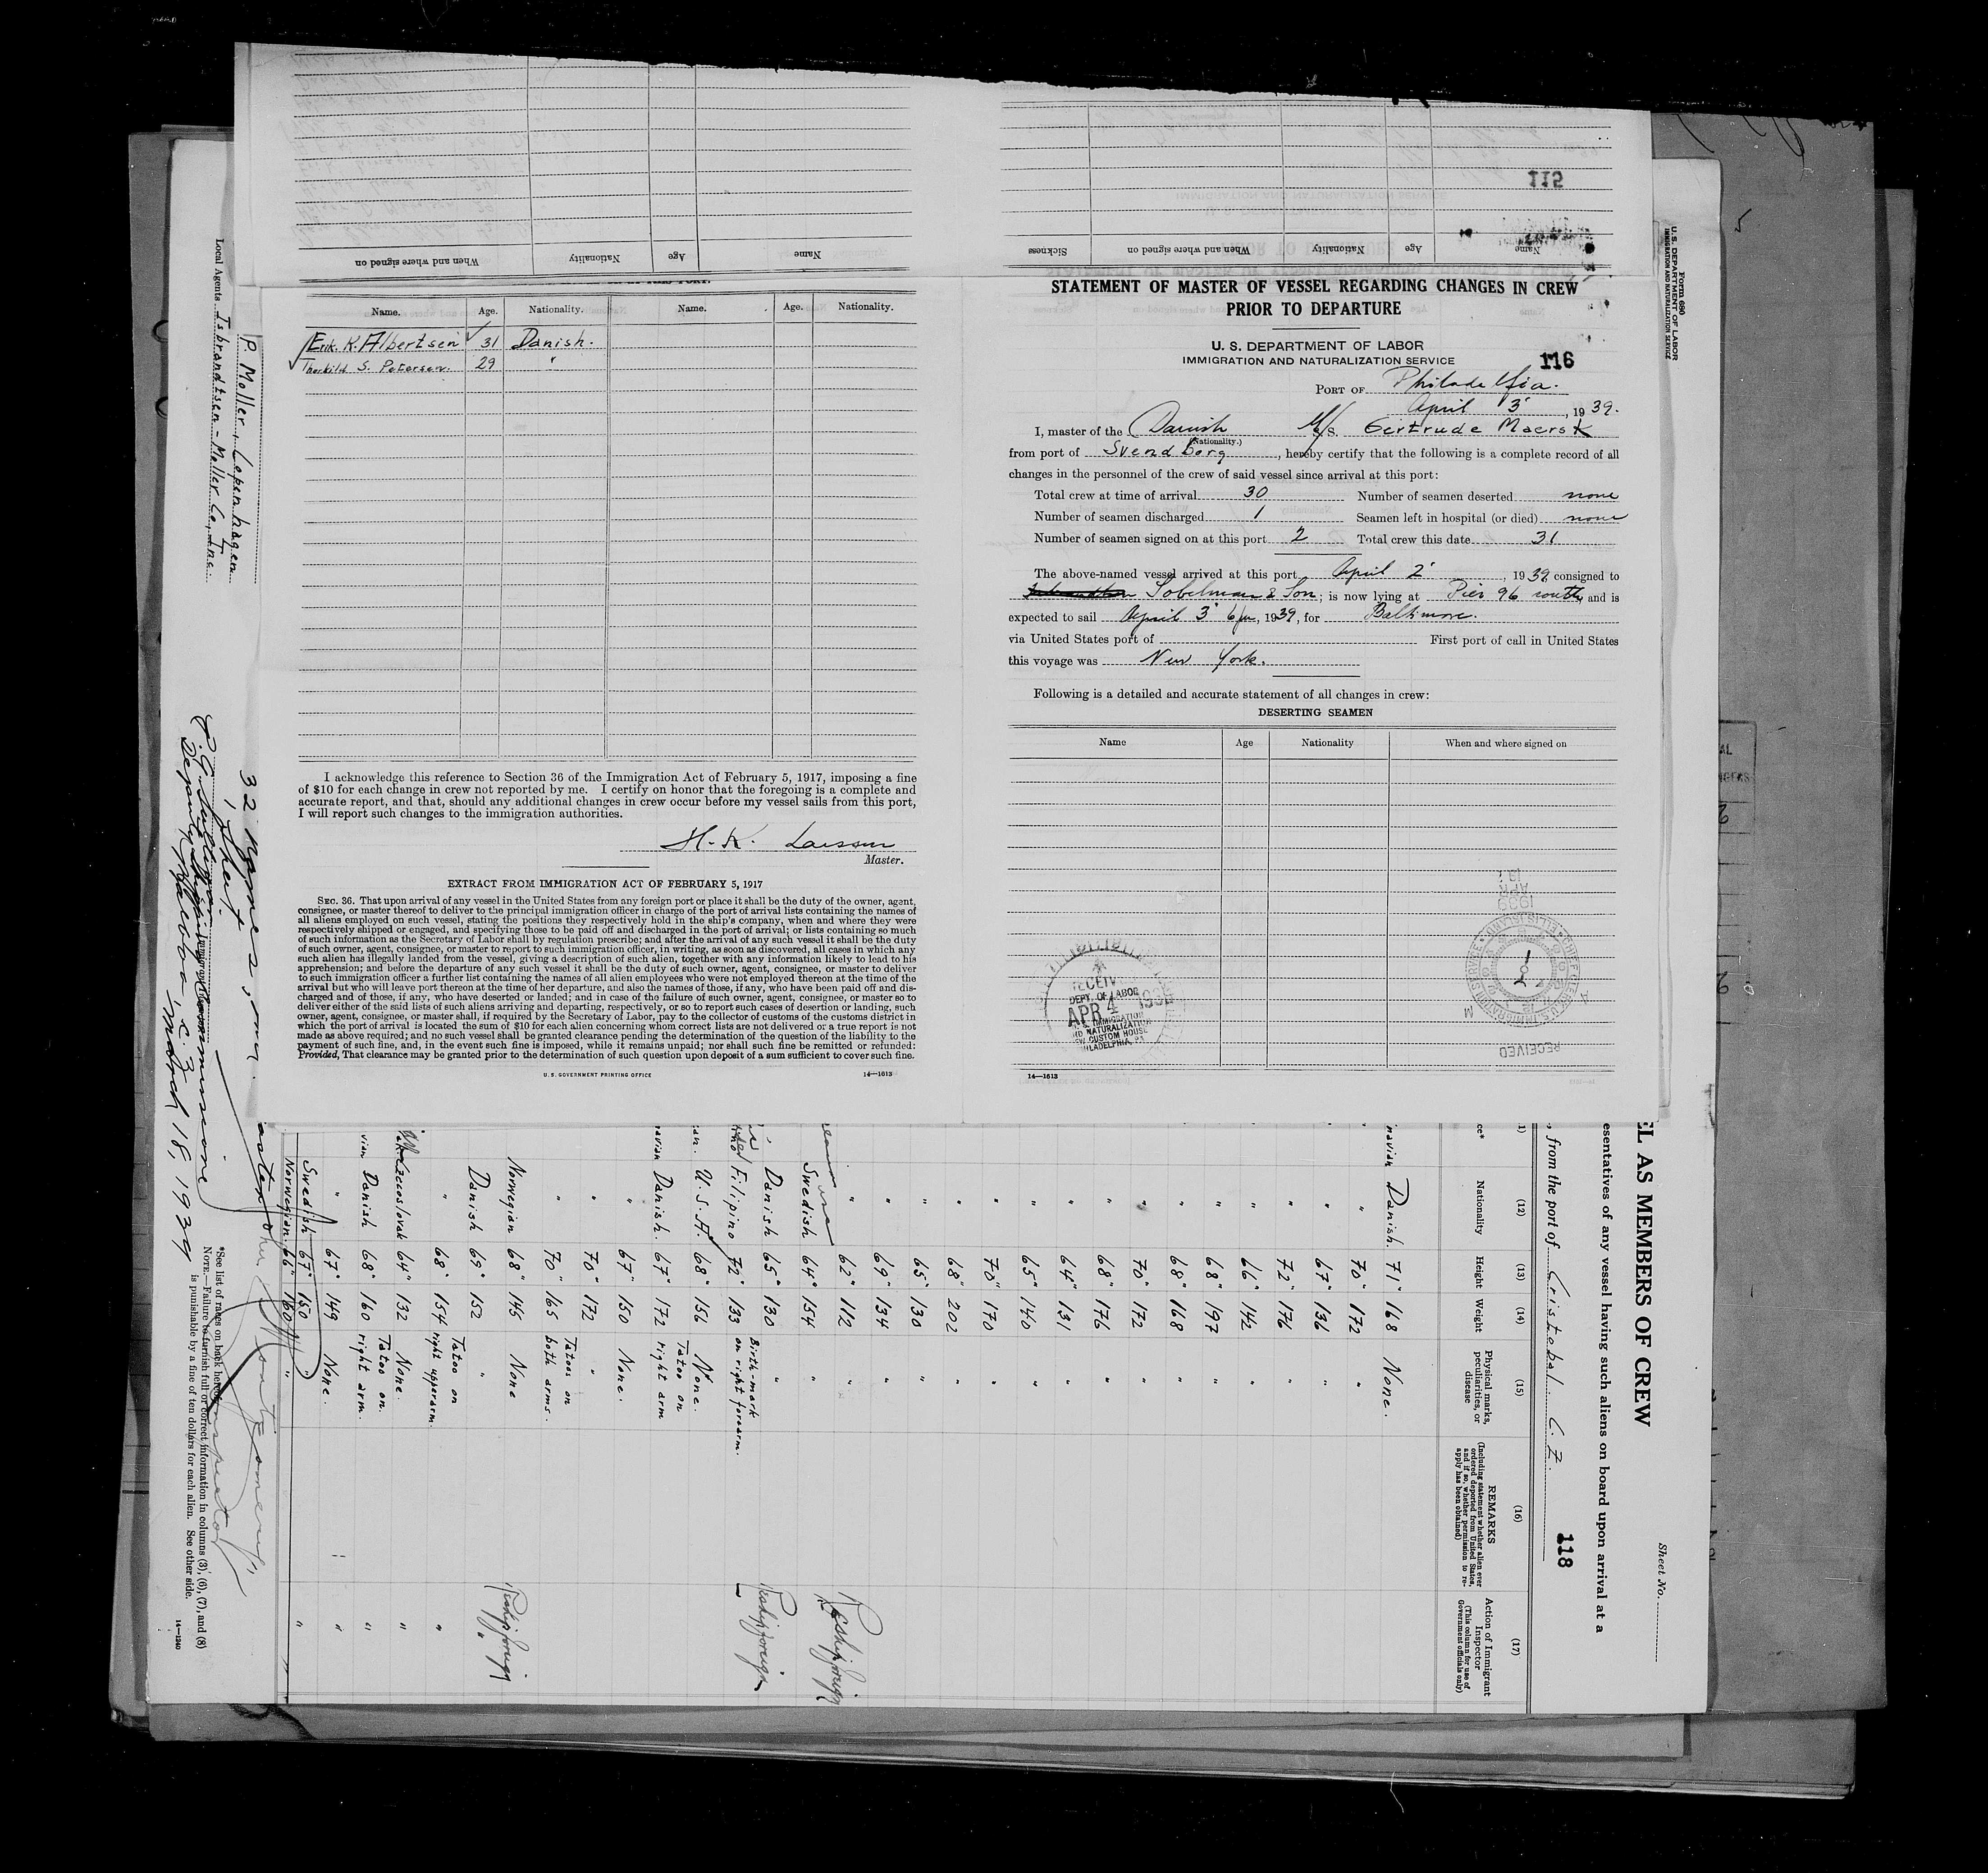 115
Sickness
When and where signed on
Nationality
Age
Name
When and where signed on
Nationality
Age
Name
Name. Age. Nationality. Name. Age. Nationality.
Erik. K. Albertsen 31 Danish.
Thorkild S. Petersen. 29 "
I acknowledge this reference to Section 36 of the Immigration Act of February 5, 1917, imposing a fine
of $10 for each change in crew not reported by me. I certify on honor that the foregoing is a complete and
accurate report, and that, should any additional changes in crew occur before my vessel sails from this port,
I will report such changes to the immigration authorities.
H. K. Larsen
Master.
EXTRACT FROM IMMIGRATION ACT OF FEBRUARY 5, 1917
SEC. 36. That upon arrival of any vessel in the United States from any foreign port or place it shall be the duty of the owner, agent,
consignee, or master thereof to deliver to the principal immigration officer in charge of the port of arrival lists containing the names of
all aliens employed on such vessel, stating the positions they respectively hold in the ship's company, when and where they were
respectively shipped or engaged, and specifying those to be paid off and discharged in the port of arrival; or lists containing so much
of such information as the Secretary of Labor shall by regulation prescribe; and after the arrival of any such vessel it shall be the duty
of such owner, agent, consignee, or master to report to such immigration officer, in writing, as soon as discovered, all cases in which any
such alien has illegally landed from the vessel, giving a description of such alien, together with any information likely to lead to his
apprehension; and before the departure of any such vessel it shall be the duty of such owner, agent, consignee, or master to deliver
to such immigration officer a further list containing the names of all alien employees who were not employed thereon at the time of the
arrival but who will leave port thereon at the time of her departure, and also the names of those, if any, who have been paid off and dis-
charged and of those, if any, who have deserted or landed; and in case of the failure of such owner, agent, consignee, or master so to
deliver either of the said lists of such aliens arriving and departing, respectively, or so to report such cases of desertion or landing, such
owner, agent, consignee, or master shall, if required by the Secretary of Labor, pay to the collector of customs of the customs district in
which the port of arrival is located the sum of $10 for each alien concerning whom correct lists are not delivered or a true report is not
made as above required; and no such vessel shall be granted clearance pending the determination of the question of the liability to the
payment of such fine, and, in the event such fine is imposed, while it remains unpaid; nor shall such fine be remitted or refunded:
Provided, That clearance may be granted prior to the determination of such question upon deposit of a sum sufficient to cover such fine.
U. S. GOVERNMENT PRINTING OFFICE 14—1613
STATEMENT OF MASTER OF VESSEL REGARDING CHANGES IN CREW
PRIOR TO DEPARTURE
U. S. DEPARTMENT OF LABOR
IMMIGRATION AND NATURALIZATION SERVICE
116
PORT OF Philadelfia.
April 3', 1939.
I, master of the Danish M/S. Gertrude Maersk
(Nationality.)
from port of Svendborg, hereby certify that the following is a complete record of all
changes in the personnel of the crew of said vessel since arrival at this port:
Total crew at time of arrival 30 Number of seamen deserted none
Number of seamen discharged 1 Seamen left in hospital (or died) none
Number of seamen signed on at this port 2 Total crew this date 31
The above-named vessel arrived at this port April 2', 1939, consigned to
Sobelman & Son; is now lying at Pier 96 south, and is
expected to sail April 3' 6 pm, 1939, for Baltimore.
via United States port of First port of call in United States
this voyage was New York.
Following is a detailed and accurate statement of all changes in crew:
DESERTING SEAMEN
Name Age Nationality When and where signed on
DEPT. OF LABOR
APR 4 1939
IMMIGRATION
NATURALIZATION
CUSTOM HOUSE
PHILADELPHIA, PA
RECEIVED
14—1613
Form 680
U. S. DEPARTMENT OF LABOR
IMMIGRATION AND NATURALIZATION SERVICE
Sheet No.
EL AS MEMBERS OF CREW
esentatives of any vessel having such aliens on board upon arrival at a
from the port of Cristobal C. Z.
118
(12) (13) (14) (15) (16) (17)
Nationality Height Weight Physical marks, peculiarities, or disease
REMARKS
(Including statement whether alien ever ordered deported from United States, and if so, whether permission to re-apply has been obtained)
Action of Immigrant Inspector
(This column for use of Government officials only)
navian Danish. 71" 168 None.
" 70" 172 "
" 67" 136 "
" 72" 176 "
" 66" 142 "
" 68" 197 "
" 68" 168 "
" 70" 172 "
" 68" 176 "
" 64" 131 "
" 65" 140 "
" 70" 170 "
" 68" 202 "
" 65" 130 "
" 69" 134 "
" 62" 112 "
Swedish 64" 154 " Reship foreign
Danish 65" 130 "
Filipino 72" 133 Birth-mark on right forearm. Reship foreign
U.S.A. 68" 156 None.
navian Danish. 67" 172 Tatoo on right arm
" 67" 150 None.
" 70" 172 "
" 70" 165 Tatoos on both arms.
Norwegian 68" 145 None Reship foreign
Danish 69" 152 " "
" 68" 154 Tatoo on right upperarm. "
Zecoslovak 64" 132 None. "
vian Danish 68" 160 Tatoo on right arm. "
" 67" 149 None. "
Swedish 67" 150 " "
Norwegian. 66" 160 " "
32 names, one
1 sheet
Balboa, C. Z. March 18, 1939
P. Moller, Copenhagen
Local Agents Isbrandtsen - Moller Co., Inc.
*See list of races on back hereof.
NOTE.—Failure to furnish full or correct information in columns (3), (6), (7), and (8)
is punishable by a fine of ten dollars for each alien. See other side.
14—1240